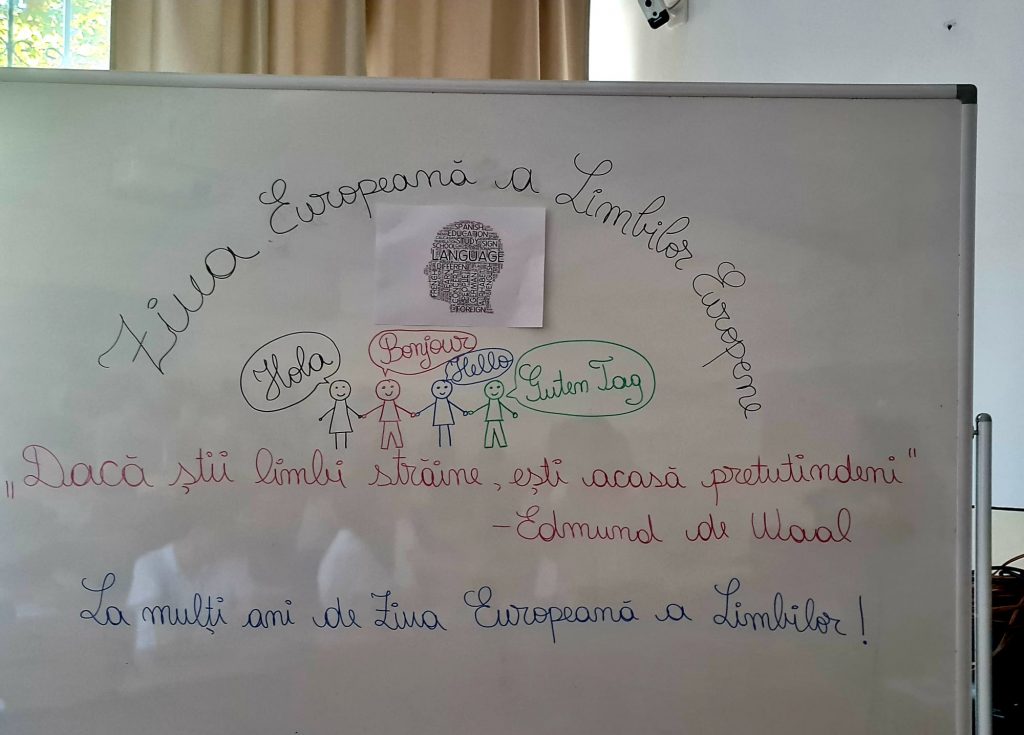 Ziua Europeană a Limbilor Europene
SPANISH
EDUCATION
STUDY SIGN
LANGUAGE
FOREIGN
Hola
Bonjour
Hello
Guten Tag
„Dacă știi limbi străine, ești acasă pretutindeni"
- Edmund de Waal
La mulți ani de Ziua Europeană a Limbilor!